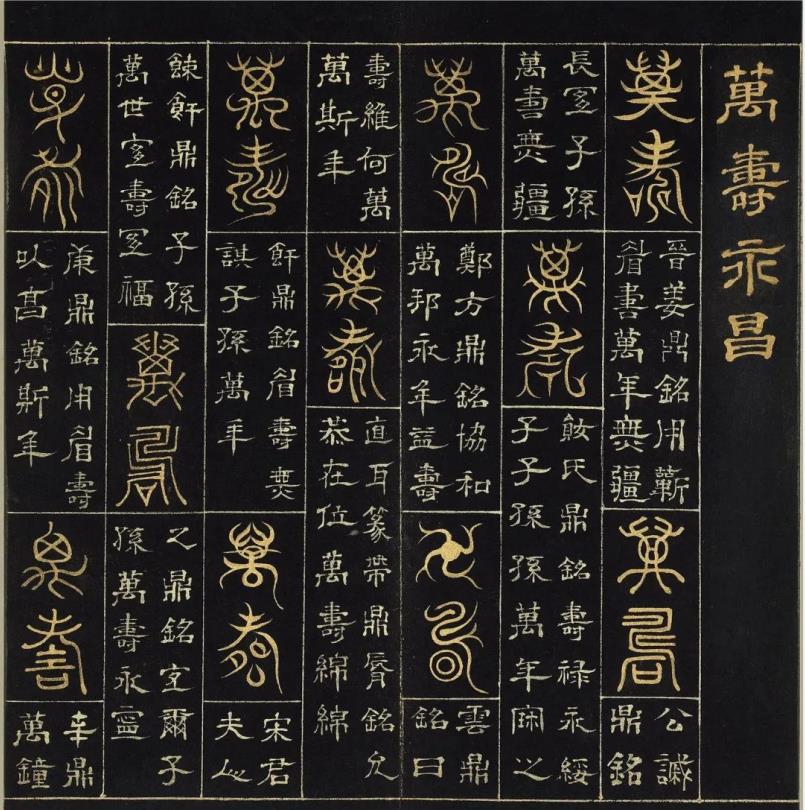 萬壽永昌
萬壽
晉姜鼎銘用蘄
眉壽萬年無疆
萬壽
公諴
鼎銘
長宜子孫
萬壽無疆
萬壽
氏鼎銘壽祿永綏
子子孫孫萬年之
萬壽
鄭方鼎銘協和
萬邦永年益壽
卍壽
雲鼎
銘曰
壽維何萬
萬斯年
萬壽
直耳篆帶鼎脣銘允
恭在位萬壽綿綿
萬壽
釬鼎銘眉壽無
諆子孫萬年
萬壽
宋君
夫人
餗釬鼎銘子孫
萬世宜壽宜福
萬壽
乙鼎銘宜爾子
孫萬壽永寧
庚鼎銘用眉壽
以高萬斯年
萬壽
辛鼎
萬鐘